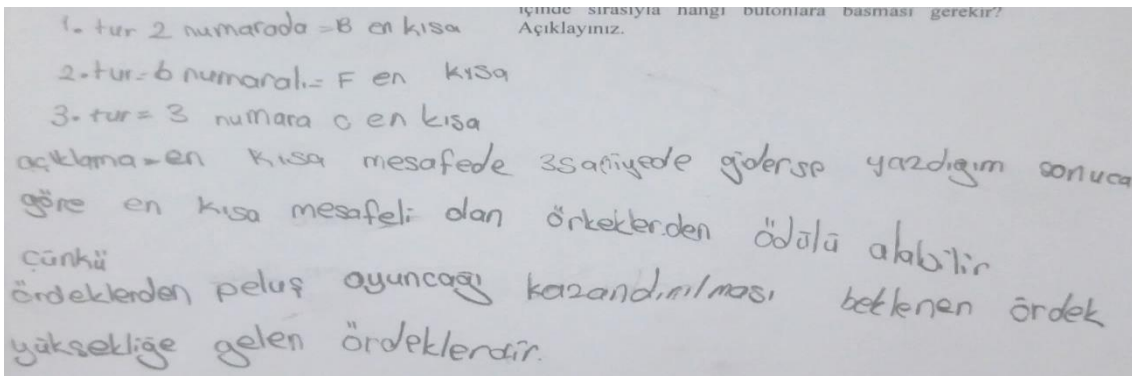 içinde sırasıyla hangi butonlara basması gerekir?
Açıklayınız.
1. tur 2 numarada = B en kısa
2. tur = 6 numaralı = F en kısa
3. tur = 3 numara C en kısa
açıklama = en kısa mesafede 3saniyede giderse yazdığım sonuca
göre en kısa mesafeli olan örkeklerden ödülü alabilir
çünkü
ördeklerden peluş oyuncağı kazandırılması beklenen ördek
yüksekliğe gelen ördeklerdir.